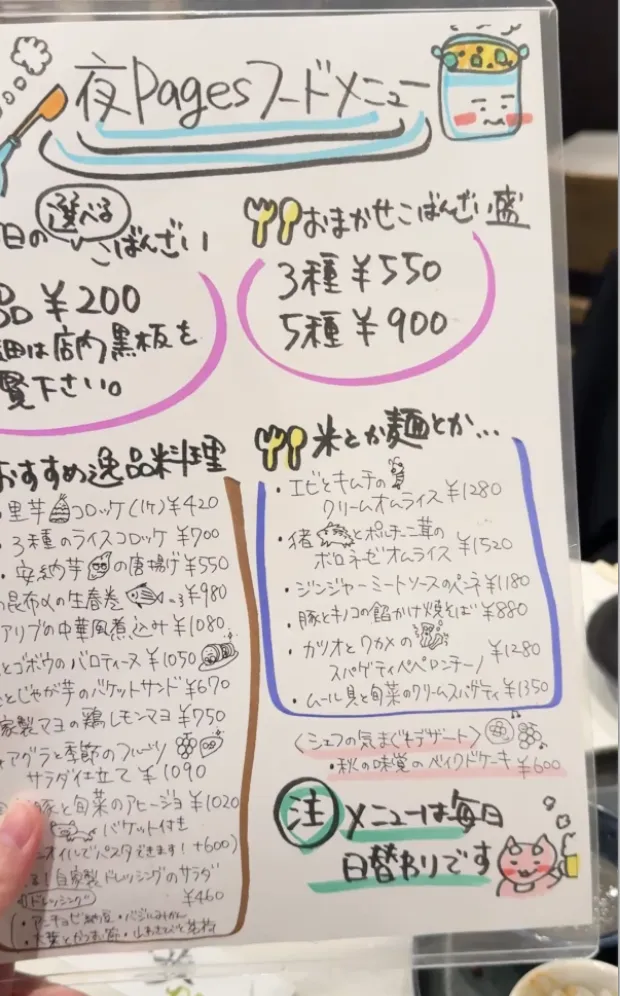 夜Pagesフードメニュー
日の選べる
こばんざい
品¥200
細は店内黒板を
覧下さい。
おまかせこばんざい盛
3種¥550
5種¥900
おすすめ逸品料理
里芋コロッケ(1ケ)¥420
・3種のライスコロッケ¥700
・安納芋の唐揚げ¥550
の昆布〆の生春巻 ¥980
アリブの中華風煮込み¥1080
とゴボウのバロティーヌ¥1050
とじゃが芋のバケットサンド¥670
家製マヨの鶏レモンマヨ¥750
アグラと季節のフルーツ
サラダ仕立て¥1090
豚と旬菜のアヒージョ¥1020
バケット付き
オイルでパスタできます!+600)
る!自家製ドレッシングのサラダ
¥460
ドレッシング
米とか麺とか…
・エビとキムチの
クリームオムライス¥1280
・猪とポルチーニ茸の
ボロネーゼオムライス¥1520
・ジンジャーミートソースのペンネ¥1180
・豚とキノコの餡かけ焼そば¥880
・カツオとワカメの
スパゲティペペロンチーノ¥1280
・ムール貝と旬菜のクリームスパゲティ¥1350
〈シェフの気まぐれデザート〉
・秋の味覚のベイクドケーキ¥600
注 メニューは毎日
日替わりです